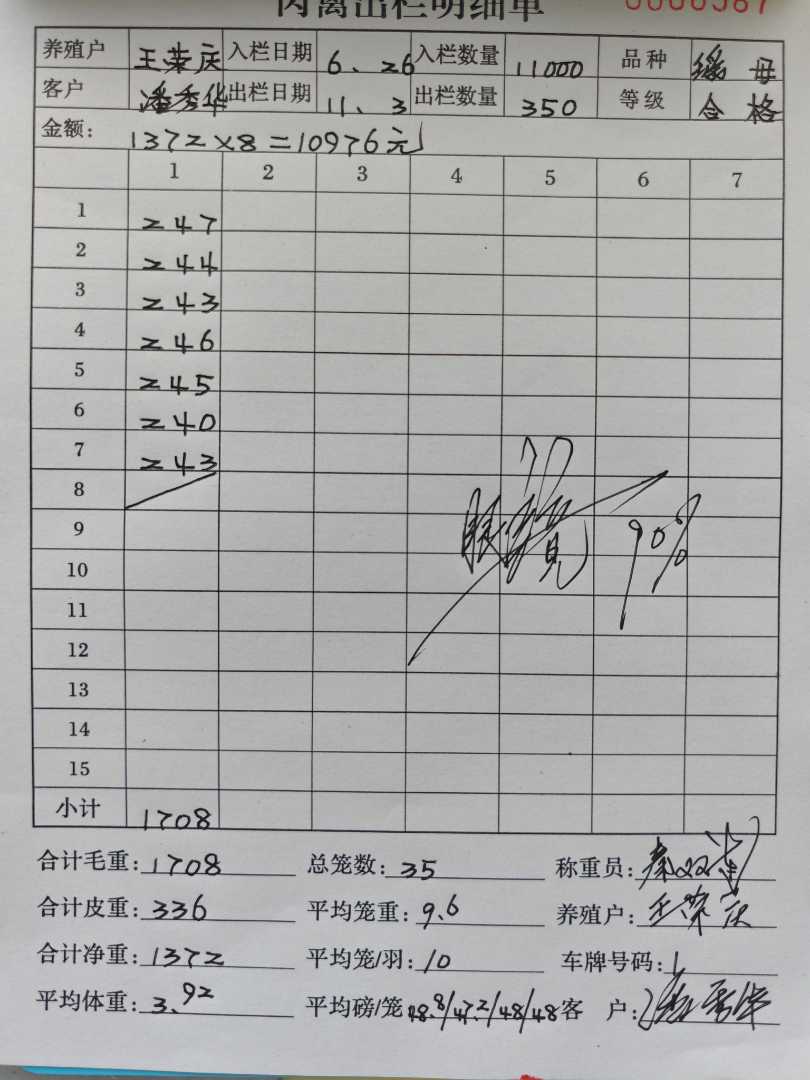 肉禽出栏明细单 0000587
养殖户 王荣庆 入栏日期 6、26 入栏数量 11000 品种 母
客户 潘秀华 出栏日期 11、3 出栏数量 350 等级 合格
金额: 1372×8=10976元
1 2 3 4 5 6 7
1 247
2 244
3 243
4 246
5 245
6 240
7 243
8
9 90%
10
11
12
13
14
15
小计 1708
合计毛重: 1708 总笼数: 35 称重员:
合计皮重: 336 平均笼重: 9.6 养殖户: 王荣庆
合计净重: 1372 平均笼/羽: 10 车牌号码:
平均体重: 3.92 平均磅/笼 48.8/47.2/48/48 客 户: 潘秀华